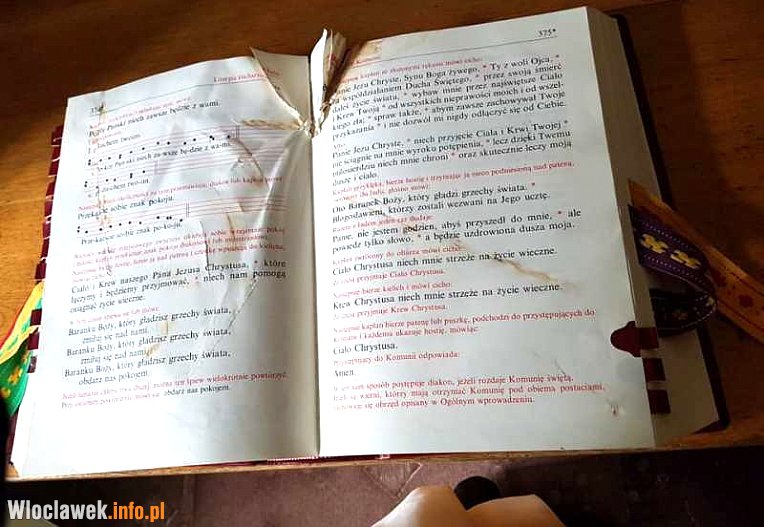 Pokój Pański niech zawsze będzie z wami.
I z duchem twoim.
Pański niech za-wsze bę-dzie z wa-mi.
I z duchem two-im.
Przekażcie sobie znak pokoju.
Przekaż-cie sobie znak po-ko-ju.
Ciało i Krew naszego Pana Jezusa Chrystusa, * które
łączymy i będziemy przyjmować, * niech nam pomogą
osiągnąć życie wieczne.
Baranku Boży, który gładzisz grzechy świata,
zmiłuj się nad nami.
Baranku Boży, który gładzisz grzechy świata,
zmiłuj się nad nami.
Baranku Boży, który gładzisz grzechy świata,
obdarz nas pokojem.
obdarz nas pokojem.
375*
Panie Jezu Chryste, Synu Boga żywego, * Ty z woli Ojca, *
za współdziałaniem Ducha Świętego, * przez swoją śmierć
dałeś życie światu, * wybaw mnie przez najświętsze Ciało
i Krew Twoją * od wszystkich nieprawości moich i od wszel-
kiego zła; * spraw także, * abym zawsze zachowywał Twoje
przykazania * i nie dozwól mi nigdy odłączyć się od Ciebie.
Panie Jezu Chryste, * niech przyjęcie Ciała i Krwi Twojej *
nie ściągnie na mnie wyroku potępienia, * lecz dzięki Twemu
miłosierdziu niech mnie chroni * oraz skutecznie leczy moją
duszę i ciało.
Kapłan przyklęka, bierze hostię i trzymając ją nieco podniesioną nad pateną,
zwrócony do ludu, głośno mówi:
Oto Baranek Boży, który gładzi grzechy świata. *
Błogosławieni, którzy zostali wezwani na Jego ucztę.
Razem z ludem jeden raz dodaje:
Panie, nie jestem godzien, abyś przyszedł do mnie, * ale
powiedz tylko słowo, * a będzie uzdrowiona dusza moja.
Kapłan zwrócony do ołtarza mówi cicho:
Ciało Chrystusa niech mnie strzeże na życie wieczne.
I ze czcią przyjmuje Ciało Chrystusa.
Następnie bierze kielich i mówi cicho:
Krew Chrystusa niech mnie strzeże na życie wieczne.
I ze czcią przyjmuje Krew Chrystusa.
Następnie kapłan bierze patenę lub puszkę, podchodzi do przystępujących do
Komunii i każdemu ukazuje hostię, mówiąc:
Ciało Chrystusa.
Przystępujący do Komunii odpowiada:
Amen.
W ten sam sposób postępuje diakon, jeżeli rozdaje Komunię świętą.
Jeżeli są wierni, którzy mają otrzymać Komunię pod obiema postaciami,
zachowuje się obrzęd opisany w Ogólnym wprowadzeniu.
Wloclawek.info.pl